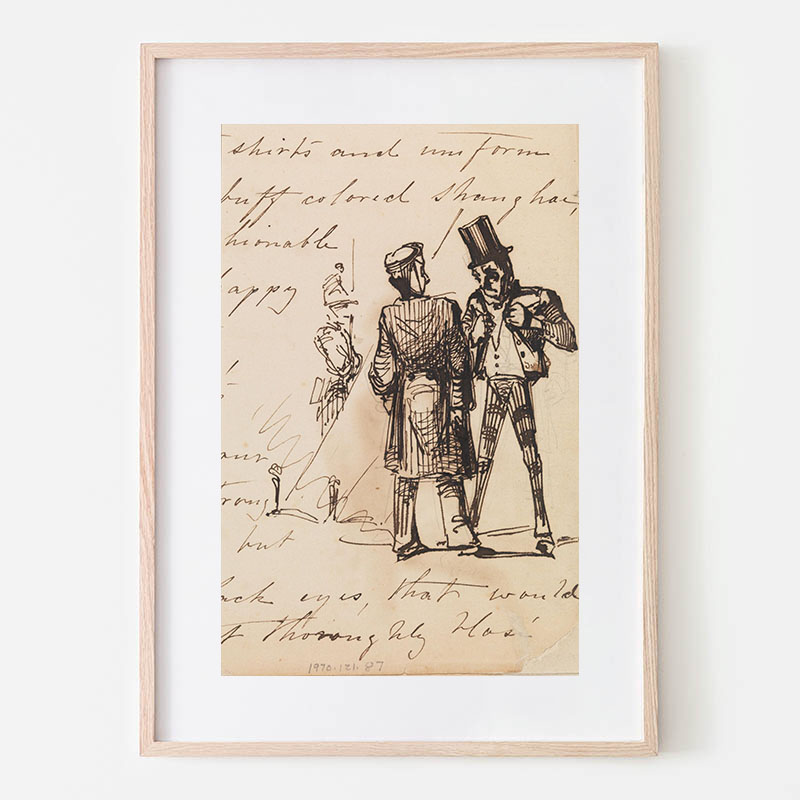 shirts and uniform
buff colored Shanghai,
hionable
happy
but
ack eyes, that would
thoroughly
1970.121.87